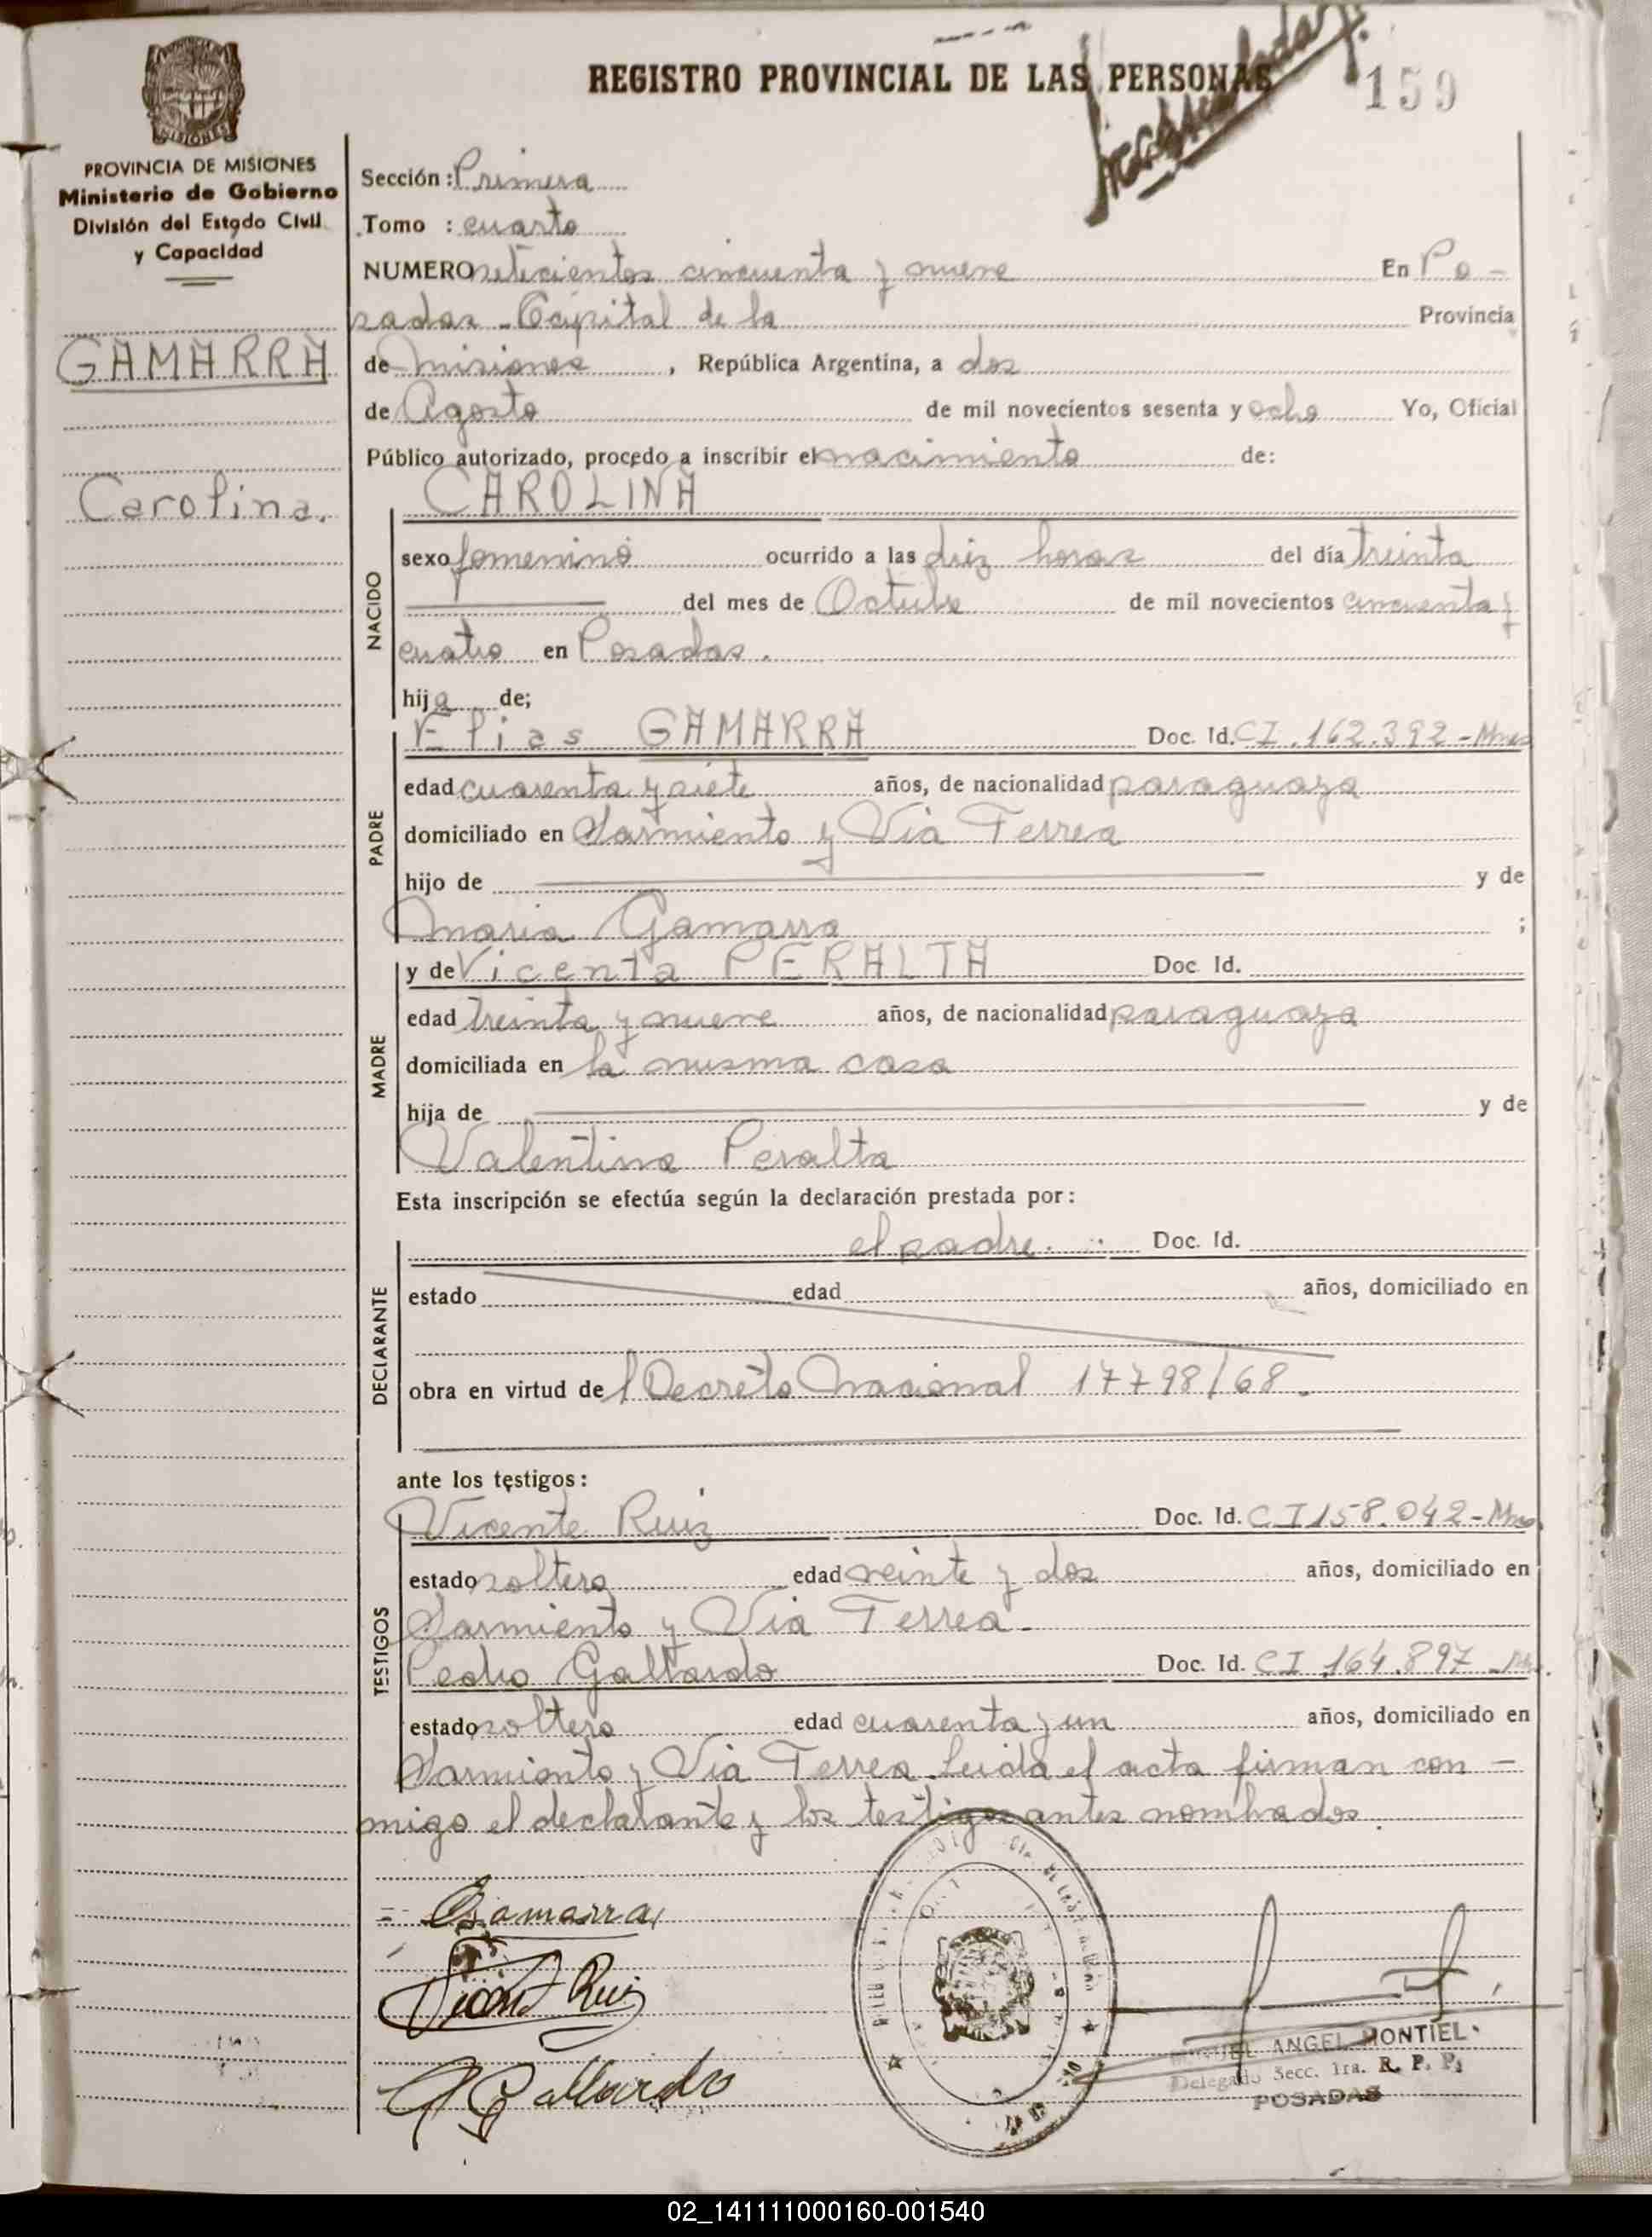 REGISTRO PROVINCIAL DE LAS PERSONAS
159
MISIONES
PROVINCIA DE MISIONES
Ministerio de Gobierno
División del Estado Civil
y Capacidad
GAMARRA
Carolina.
Sección: Primera
Tomo : cuarto
NUMERO setecientos cincuenta y nueve En Po-
sadas - Capital de la Provincia
de misiones, República Argentina, a dos
de Agosto de mil novecientos sesenta y ocho Yo, Oficial
Público autorizado, procedo a inscribir el nacimiento de:
NACIDO
CAROLINA
sexo femenino ocurrido a las diez horas del día treinta
del mes de Octubre de mil novecientos cincuenta y
cuatro en Posadas.
hija de;
PADRE
Elias GAMARRA Doc. Id. CI.162.392-Mnes
edad cuarenta y siete años, de nacionalidad paraguaya
domiciliado en Sarmiento y Via Terrea
hijo de y de
Maria Gamarra ;
MADRE
y de Vicenta PERALTA Doc Id.
edad treinta y nueve años, de nacionalidad paraguaya
domiciliada en la misma casa
hija de y de
Valentina Peralta
Esta inscripción se efectúa según la declaración prestada por:
DECLARANTE
el padre. Doc. Id.
estado edad años, domiciliado en
obra en virtud del Decreto Nacional 17798/68.
ante los testigos:
TESTIGOS
Vicente Ruiz Doc. Id. CI 158.042-Mnes.
estado soltero edad veinte y dos años, domiciliado en
Sarmiento y Via Terrea.
Pedro Gallardo Doc. Id. CI 164.897
estado soltero edad cuarenta y un años, domiciliado en
Sarmiento y Via Terrea. Leida el acta firman con-
migo el declarante y los testigos antes nombrados.
Gamarra
Vicente Ruiz
Gallardo
ANGEL MONTIEL
Delegado Secc. 1ra. R. P. P.
POSADAS
02_141111000160-001540